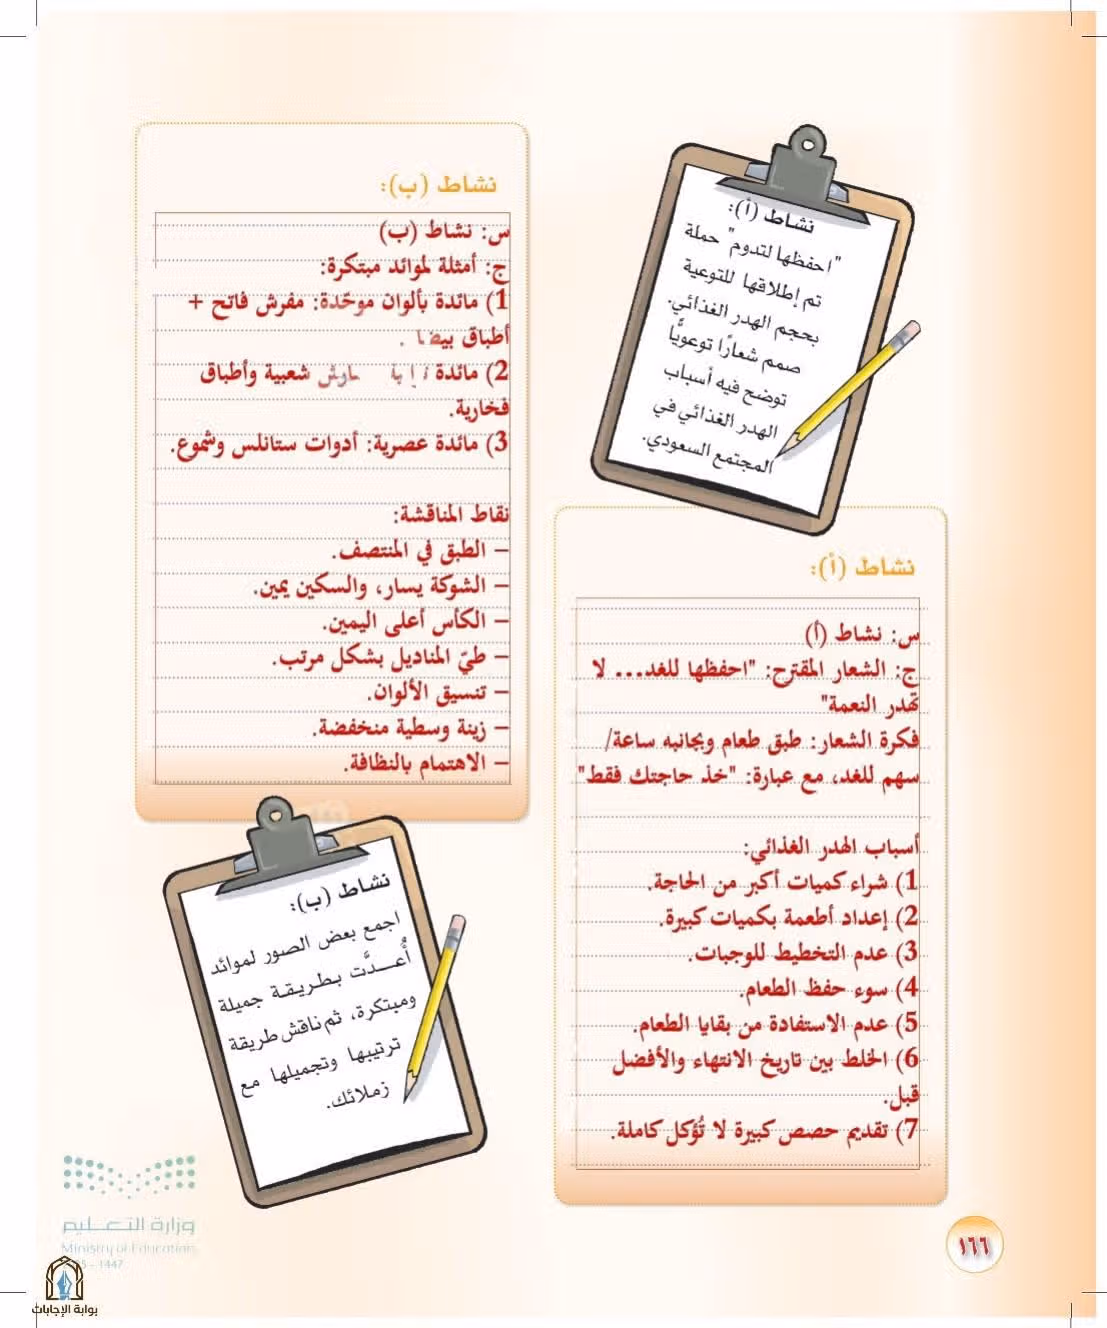 نشاط (أ):
"احفظها لتدوم" حملة
تم إطلاقها للتوعية
بحجم الهدر الغذائي.
صمم شعارًا توعويًّا
توضح فيه أسباب
الهدر الغذائي في
المجتمع السعودي.
نشاط (أ):
س: نشاط (أ)
ج: الشعار المقترح: "احفظها للغد... لا
تهدر النعمة"
فكرة الشعار: طبق طعام وبجانبه ساعة/
سهم للغد، مع عبارة: "خذ حاجتك فقط"
أسباب الهدر الغذائي:
1) شراء كميات أكبر من الحاجة.
2) إعداد أطعمة بكميات كبيرة.
3) عدم التخطيط للوجبات.
4) سوء حفظ الطعام.
5) عدم الاستفادة من بقايا الطعام.
6) الخلط بين تاريخ الانتهاء والأفضل
قبل.
7) تقديم حصص كبيرة لا تُؤكل كاملة.
نشاط (ب):
س: نشاط (ب)
ج: أمثلة لموائد مبتكرة:
1) مائدة بألوان موحّدة: مفرش فاتح +
أطباق
2) مائدة شعبية وأطباق
فخارية.
3) مائدة عصرية: أدوات ستانلس وشموع.
نقاط المناقشة:
– الطبق في المنتصف.
– الشوكة يسار، والسكين يمين.
– الكأس أعلى اليمين.
– طيّ المناديل بشكل مرتب.
– تنسيق الألوان.
– زينة وسطية منخفضة.
– الاهتمام بالنظافة.
نشاط (ب):
اجمع بعض الصور لموائد
أُعـدَّت بطريقة جميلة
ومبتكرة، ثم ناقش طريقة
ترتيبها وتجميلها مع
زملائك.
وزارة التعليم
Ministry of Education
- 1447
١٦٦
بوابة الإجابات